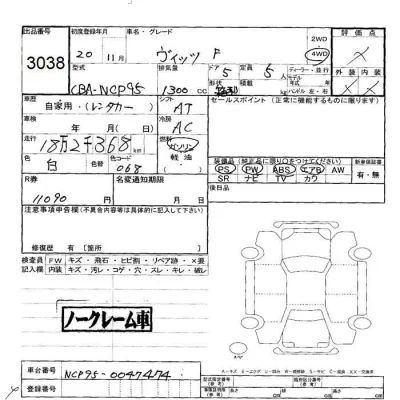 出品番号 3038
初度登録年月 20年 11月
車名・グレード ヴィッツ F
2WD 4WD
評価点
型式 CBA-NCP95
排気量 1300 CC
ドア 5
定員 5人
ディーラー・並行
モデル年式
ハンドル 左・右
外装 内装
車歴 自家用・(レンタカー)
シフト AT
セールスポイント (正常に機能するものに限る)
車検 年 月
冷房 AC
走行 18万2千368km
燃料 ガソリン 軽油
色 白
色コード 068
装備品 (純正品に限り〇をつけてください)
PS PW ABS エアB AW
SR ナビ TV カワ
新車保証書 有・無
R券 11090
名変通知期限 年 月 日
後日品
注意事項申告欄 (不具合内容等は具体的に記入して下さい)
修復歴 有 [箇所 ]
検査員記入欄
FW キズ・飛石・ヒビ割・リペア跡・×要
内装 キズ・汚レ・コゲ・穴・スレ・キレ・破レ
ノークレーム車
車台番号 NCP95-0047474
登録番号
型式指定番号
類別区分番号